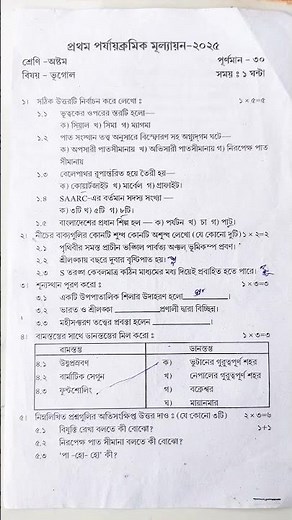 প্রথম পর্যায়ক্রমিক মূল্যায়ন-২০২৫
শ্রেণি -অষ্টম পূর্ণমান - ৩০
বিষয় - ভূগোল সময় : ১ ঘন্টা
১। সঠিক উত্তরটি নির্বাচন করে লেখো : ১×৫=৫
১.১ ভূত্বকের ওপরের স্তরটি হলো—
ক) সিয়াল খ) সিমা গ) ম্যাগমা
১.২ পাত সংস্থান তত্ত্ব অনুসারে বিস্ফোরণ সহ অগ্ন্যুদ্‌গম ঘটে—
ক) অপসারী পাতসীমানায় খ) অভিসারী পাতসীমানায় গ) নিরপেক্ষ পাত
সীমানায়
১.৩ বেলেপাথর রূপান্তরিত হয়ে তৈরী হয়—
ক) কোয়ার্টজাইট খ) মার্বেল গ) গ্রাফাইট।
১.৪ SAARC-এর বর্তমান সদস্য সংখ্যা —
ক) ৩টি খ) ৫টি গ) ৮টি।
১.৫ বাংলাদেশের প্রধান শিল্প হল — ক) পর্যটন খ) চা গ) পাট।
২। নীচের বাক্যগুলির কোনটি শুদ্ধ কোনটি অশুদ্ধ লেখো (যে কোনো দুটি) ১×২=২
২.১ পৃথিবীর সমস্ত প্রাচীন ভঙ্গিল পার্বত্য অঞ্চল ভূমিকম্প প্রবণ।
২.২ শ্রীলঙ্কায় বছরে দুবার বৃষ্টিপাত হয়।
২.৩ S তরঙ্গ কেবলমাত্র কঠিন মাধ্যমের মধ্য দিয়েই প্রবাহিত হতে পারে।
৩। শূন্যস্থান পূরণ করো : ১×৩=৩
৩.১ একটি উপপাতালিক শিলার উদাহরণ হলো ________।
৩.২ ভারত ও শ্রীলঙ্কা ________প্রণালী দ্বারা বিচ্ছিন্ন।
৩.৩ মহীসঞ্চরণ তত্ত্বের প্রবক্তা হলেন ________।
৪। বামস্তম্ভের সাথে ডানস্তম্ভের মিল করো : ১×৩=৩
বামস্তম্ভ ডানস্তম্ভ
৪.১ উষ্ণপ্রস্রবণ ক) ভুটানের গুরুত্বপূর্ণ শহর
৪.২ বার্মাটিক সেগুন খ) নেপালের গুরুত্বপূর্ণ শহর
৪.৩ ফুন্টশোলিং গ) বক্রেশ্বর
ঘ) মায়ানমার
৫। নিম্নলিখিত প্রশ্নগুলির অতিসংক্ষিপ্ত উত্তর দাও : (যে কোনো ৩টি) ২×৩=৬
৫.১ বিযুক্তি রেখা বলতে কী বোঝো? ১+১
৫.২ নিরপেক্ষ পাত সীমানা বলতে কী বোঝো?
৫.৩ 'পা -হো- হো' কী?